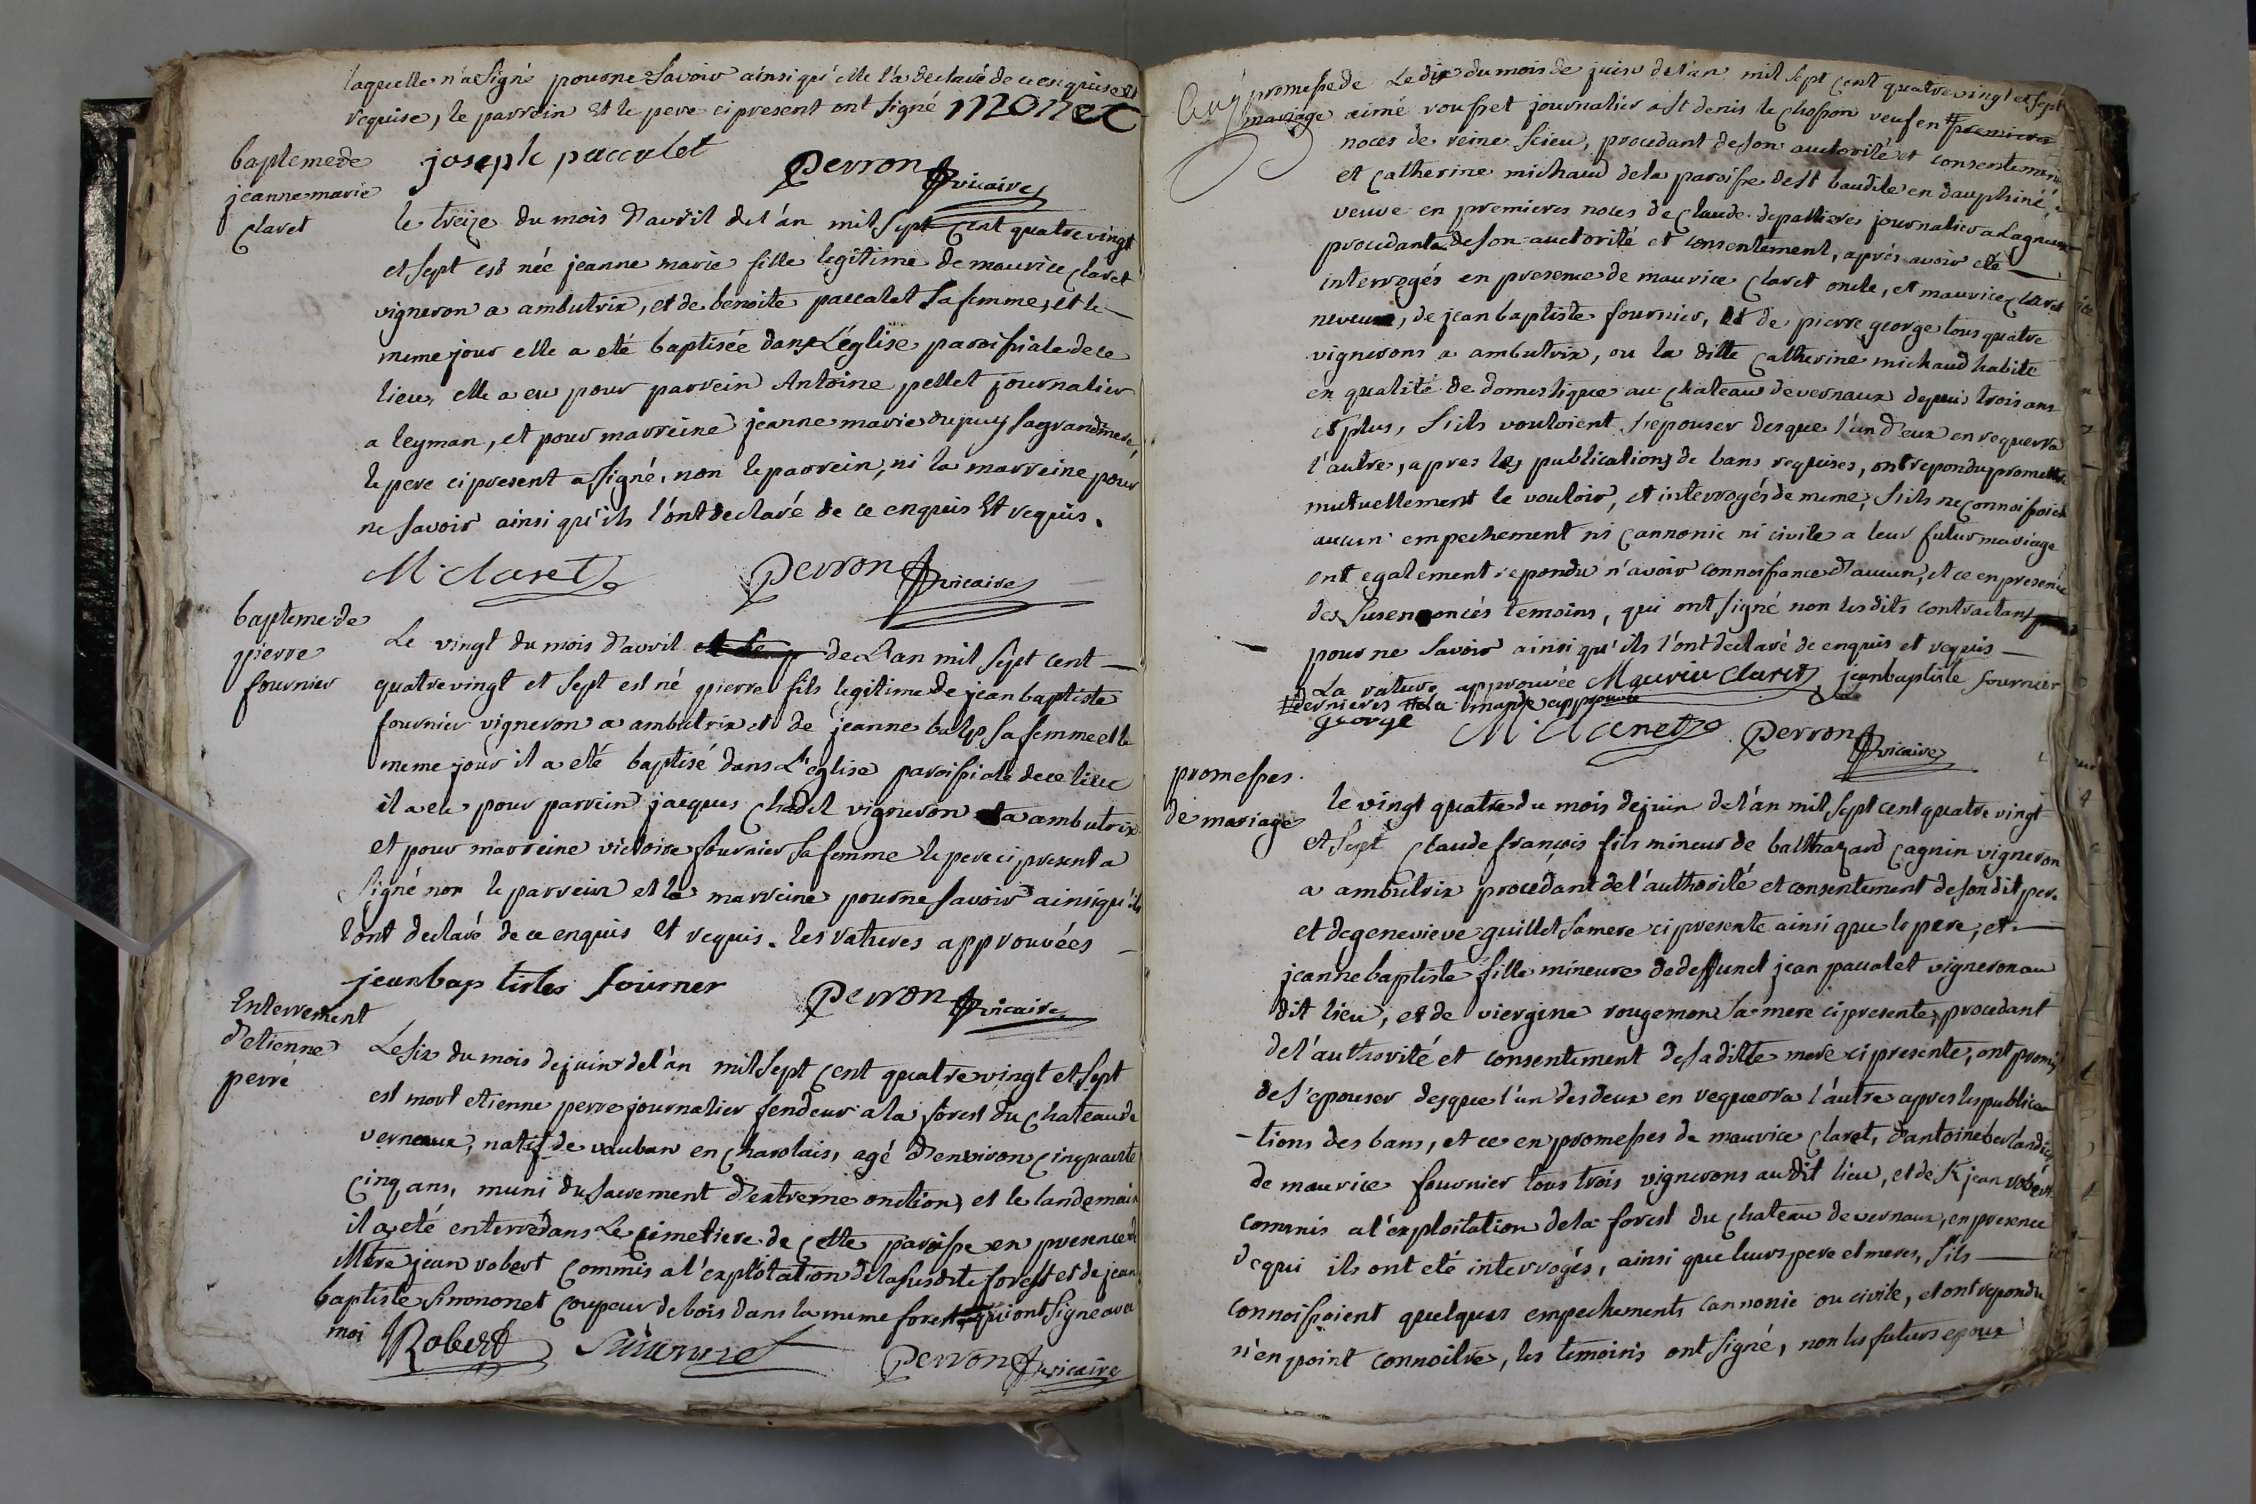 laquelle n'a signé pour ne savoir ainsi qu'elle l'a declaré de ce enquise et
requise, le parrein et le pere ci present ont signé monet
joseph paccalet Perron vicaire
baptemede
jeanne marie
Claret
le treize du mois d'avril de l'an mil sept cent quatre vingt
et sept est née jeanne marie fille legitime de maurice Claret
vigneron a ambutrix, et de benoite paccalet sa femme, et le
meme jour elle a eté baptisée dans L'église paroissiale de ce
lieu, elle a eu pour parrein Antoine pellet journalier
a leyman, et pour marreine jeanne marie dupuy sa grandmere,
le pere ci present a signé, non le parrein, ni la marreine pour
ne savoir ainsi qu'ils l'ont declaré de ce enquis et requis.
M. Claret Perron vicaire
bapteme de
pierre
fournier
Le vingt du mois d'avril de L'an mil sept cent
quatre vingt et sept est né pierre fils legitime de jean baptiste
fournier vigneron a ambutrix et de jeanne sa femme et le
meme jour il a eté baptisé dans L'eglise paroissiale de ce lieu
il a eu pour parrein jacques Chadel vigneron a ambutrix
et pour marreine victoire fournier sa femme le pere ci present a
signé non le parrein et la marreine pour ne savoir ainsi qu'ils
l'ont declaré de ce enquis et requis. les ratures approuvées
jean baptistes fourner Perron vicaire
Enterrement
d'etienne
perré
Le six du mois de juin de l'an mil sept cent quatre vingt et sept
est mort etienne perre journalier fendeur a la forest du Chateau de
vernaux, natif de vauban en Charolais, agé d'environ cinquante
cinq ans, muni du sacrement d'extreme onction, et le landemain
il a eté enterré dans Le cimetiere de Cette paroisse en presence de
Mtre jean robert Commis a l'exploitation de la susdite forest et de jean
baptiste simonnet Coupeur de bois dans la meme forest, qui ont signé avec
moi Robert Perron vicaire
promesse de
mariage
Le dix du mois de juin de l'an mil sept cent quatre vingt et sept
aimé rousset journalier a st denis le Chosson veuf en premieres
noces de reine scieu, procedant de son auctorité et consentement
et Catherine michaud de la paroisse de st baudile en dauphiné,
veuve en premieres noces de Claude depallieres journalier a Lagneux
procedante de son auctorité et consentement, aprés avoir eté
interrogés en presence de maurice Claret oncle, et maurice Claret
neveux, de jean baptiste fournier, et de pierre george tous quatre
vignerons a ambutrix, ou la ditte Catherine michaud habite
en qualité de domestique au chateau de vernaux depuis trois ans
et plus, s'ils vouloient s'epouser des que l'un d'eux en requerra
l'autre, apres les publications de bans requises, ont repondu promettre
mutuellement le vouloir, et interrogés de meme, s'ils ne connoissoient
aucun empechement ni cannonic ni civile a leur futur mariage
ont egalement repondu n'avoir connoissance d'aucun, et ce en presence
des susenoncés temoins, qui ont signé non les dits contractants
pour ne savoir ainsi qu'ils l'ont declaré de enquis et requis
La rature approuvée Maurice Claret jean baptiste fournier
# dernieres # la marge approuvée
george M Claret Perron vicaire
promesses
de mariage
le vingt quatre du mois de juin de l'an mil sept cent quatre vingt
et sept Claude françois fils mineur de balthazard Cagnin vigneron
a ambutrix procedant de l'authorité et consentement de son dit pere
et de genevieve guillet sa mere ci presente ainsi que le pere, et
jeanne baptiste fille mineure de deffunct jean paccalet vigneron au
dit lieu, et de viergine rougemon sa mere ci presente, procedant
de l'authorité et consentement de sa ditte mere ci presente, ont promis
de s'epouser des que l'un des deux en requerra l'autre apres les publica
-tions des bans, et ce en promesses de maurice Claret, d'antoine berlandier
de maurice fournier tous trois vignerons au dit lieu, et de Sr jean robert
commis a l'exploitation de la forest du Chateau de vernaux, en presence
de qui ils ont eté interrogés, ainsi que leurs pere et meres, s'ils
connoissoient quelques empechements Cannonic ou civile, et ont repondu
n'en point connoitre, les temoins ont signé, non les futurs epoux